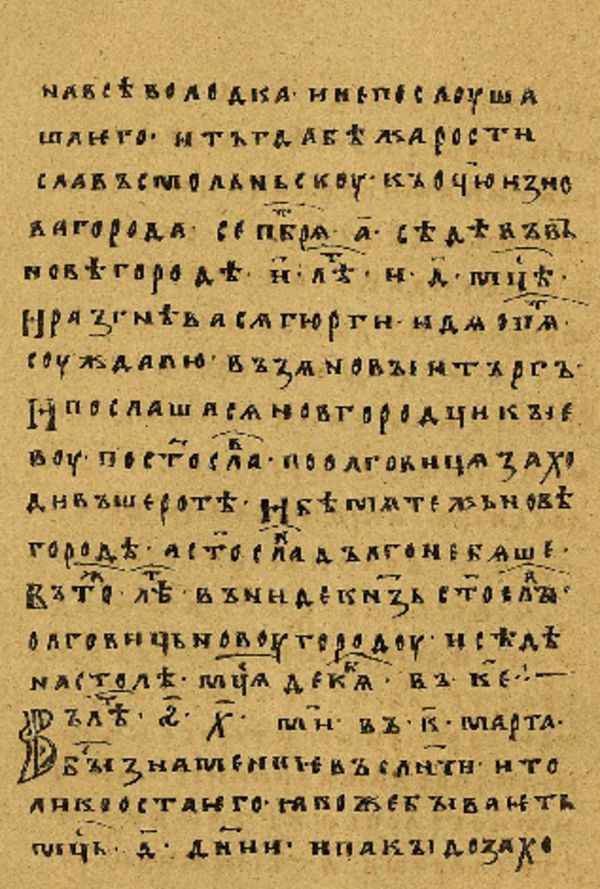 на всѣволодка· и не послоуша
ша ѥго· и тъгда бѣжа рости
славъ смольньскоу· къ оц҃ю из но
вагорода· сепбрѧ· а҃· сѣдѣвъ въ
новѣгородѣ· н҃· лѣ҃· и· д҃· мц҃ѣ·
И разгнѣвасѧ гюрги· идѧ опѧ·
соуждалю· възѧ новыи търгъ·
И послашасѧ новгородци кыѥ
воу· по ст҃осла· по олговицѧ захо
дивъше ротѣ· И бѣ мѧтежь новѣ
городѣ· а ст҃осла дълго не бѧше·
Въ то лѣ҃· въниде кн҃зь ст҃ослъ
олговиць новоугородоу· и сѣде
на столѣ· мц҃ѧ декѧ· въ к҃е·:—
Въ лѣ҃· ҂ѕ҃· х҃· м҃и· въ· к҃· марта·
бы҃ знамениѥ въ слн҃ци· и то
лико оста ѥго· ꙗкоже бываѥть
мц҃ь· д҃· дн҃ии· и пакы до захо